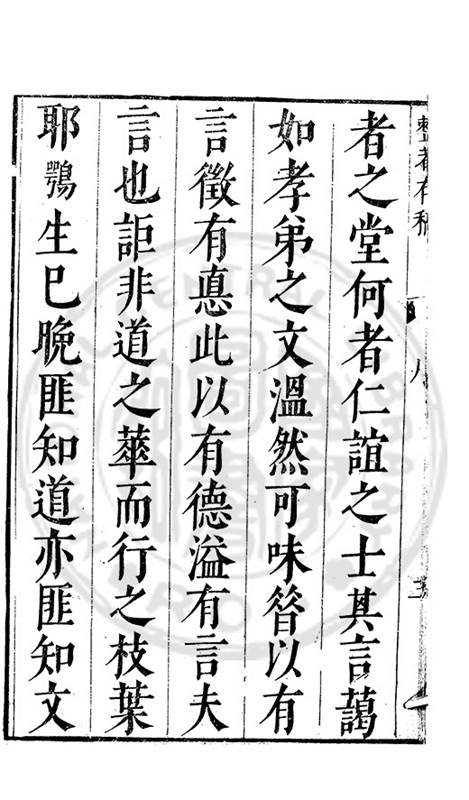 者之堂何者仁誼之士其言藹
如孝弟之文溫然可味簮以有
言徵有悳此以有德溢有言夫
言也詎非道之蕐而行之枝葉
耶鶚生巳晚匪知道亦匪知文